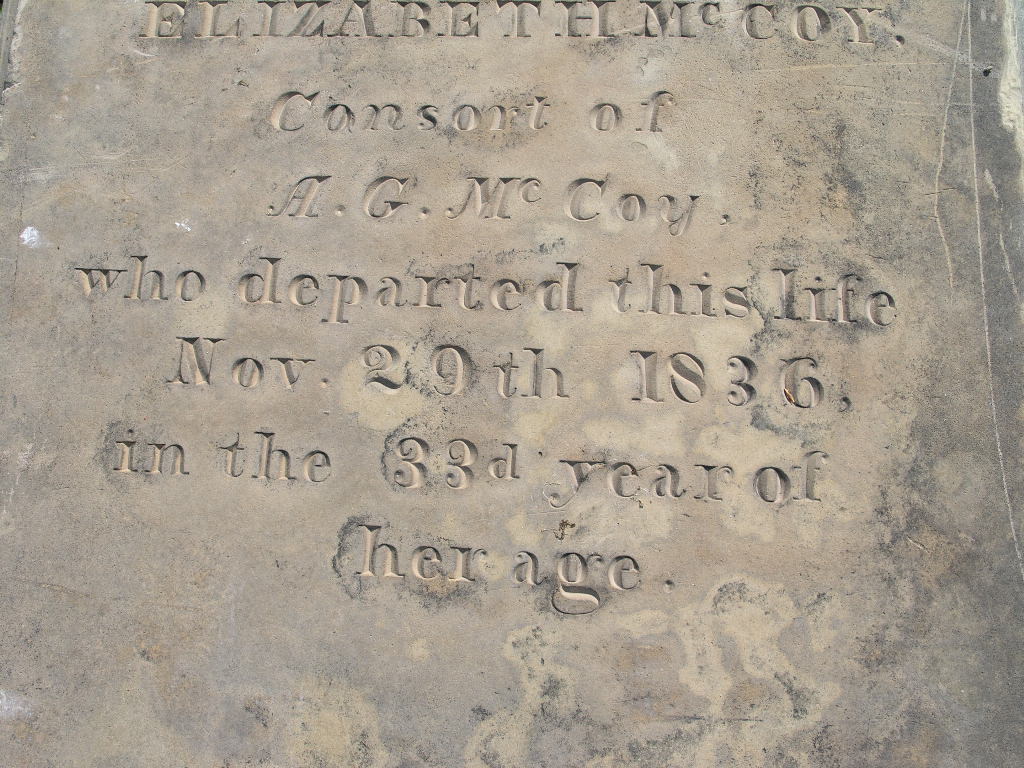 ELIZABETH McCOY.
Consort of
A. G. Mc Coy,
who departed this life
Nov. 29th 1836,
in the 33d year of
her age.